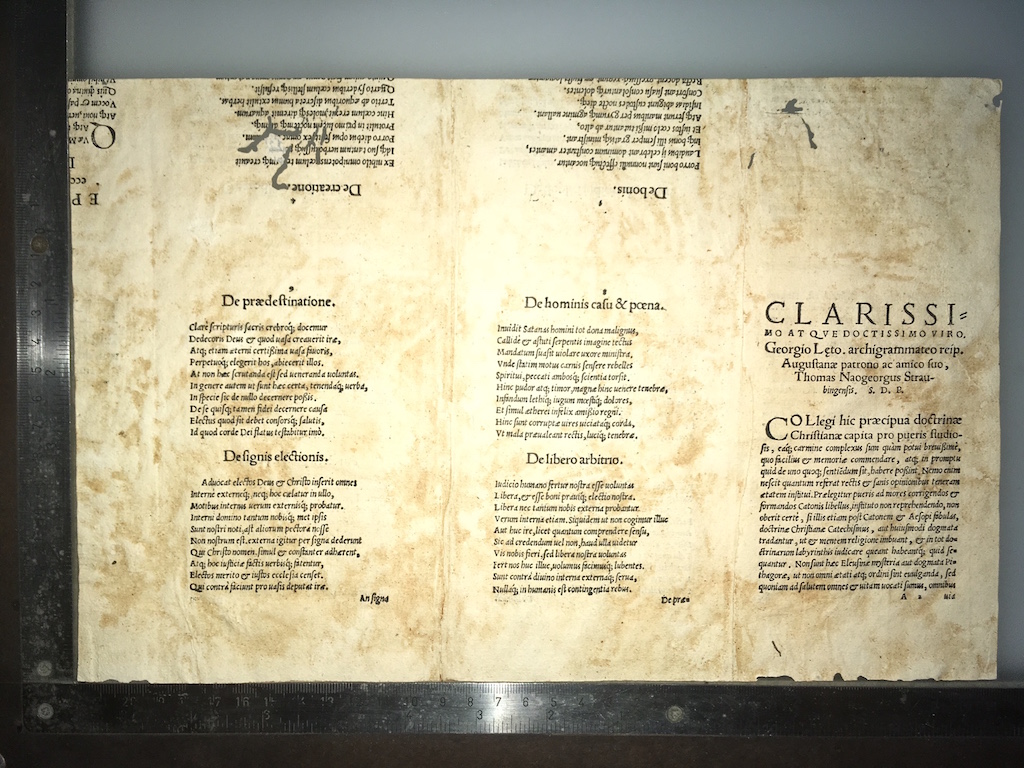 De prædestinatione.
Clarè scripturis sacris crebroq́; docemur
Dedecoris Deus & quod uasa creauerit iræ,
Atq; etiam æterni certißima uasa fauoris,
Perpetuoq́; elegerit hos, abiecerit illos.
At non hæc scrutanda est sed ueneranda uoluntas.
In genere autem ut sunt hæc certa, tenendaq́; uerba,
In specie sic de nullo decernere possis.
De se quisq; tamen fidei decernere causa
Electus quod sit debet consorsq́; salutis,
Id quod corde Dei flatus testabitur imò.
De signis electionis.
Aduocat electos Deus & Christo inserit omnes
Internè externeq́;, neq; hoc cælatur in ullo,
Motibus internus uerum externisq́; probatur.
Interni domino tantum nobisq́; met ipsis
Sunt nostri noti, ast aliorum pectora nosse
Non nostrum est. externa igitur per signa dederunt
Qui Christo nomen, simul & constanter adhærent,
Atq; hoc iusticiæ factis uerbisq́; fatentur,
Electos meritò & iustos ecclesia censet.
Qui contrà faciunt pro uasis deputat iræ.
An signa
8
De hominis casu & pœna.
Inuidit Satanas homini tot dona malignus,
Callidè & astuti serpentis imagine tectus
Mandatum suasit uiolare uxore ministra,
Vnde statim motus carnis sensere rebelles
Spiritui, peccati ambosq́; scientia torsit.
Hinc pudor atq; timor, magnæ hinc uenere tenebræ,
Infandum lethiq́; iugum mœstiq́; dolores,
Et simul ætherei infelix amißio regni.
Hinc sunt corruptæ uires uiciataq́; corda,
Vt mala præualeant rectis, luciq́; tenebræ.
De libero arbitrio.
Iudicio humano fertur nostra esse uoluntas
Libera, & esse boni prauiq́; electio nostra.
Libera nec tantum nobis externa probantur.
Verum interna etiam. Siquidem ut non cogimur illuc
Aut huc ire, licet quantum comprendere sensu,
Sic ad credendum uel non, haud ulla uidetur
Vis nobis fieri, sed libera nostra uoluntas
Fert nos huc illuc, uolumus facimusq́; lubentes.
Sunt contrà diuino interna externaq́; serua,
Nullaq́; in humanis est contingentia rebus.
De præ=
CLARISSI=
MO AT QVE DOCTISSIMO VIRO.
Georgio Lęto. archigrammateo reip.
Augustanæ patrono ac amico suo,
Thomas Naogeorgus Strau-
bingensis. S. D. P.
COLlegi hic præcipua doctrinæ
Christianæ capita pro pueris studio-
sis, eaq́; carmine complexus sum quàm potui breuißimè,
quo facilius & memoriæ commendare, atq; in promptu
quid de uno quoq; sentiēdum sit, habere poßint. Nemo enim
nescit quantum referat rectis & sanis opinionibus teneram
ætatem institui. Prælegitur pueris ad mores corrigendos &
formandos Catonis libellus, instituto non reprehendendo, non
oberit certè, si illis etiam post Catonem & Aesopi fabulas,
doctrinæ Christianæ Catechismus, aut huiusmodi dogmata
tradantur, ut & mentem religione imbuant, & in tot do-
ctrinarum labyrinthis iudicare queant habeantq́; quid se-
quantur. Non sunt hæc Eleusinæ mysteria aut dogmata Pi-
thagoræ, ut non omni ætati atq; ordini sint euulganda, sed
quoniam ad salutem omnes & uitam uocati sumus, omnibus
uia
De creatione.
Ex nihilo omnipotens
Tertio ab æquoribus discreta humus extulit herbas
De bonis.
Porro boni sunt nonnulli effectiq́; uocantur
Laudibus ij celebrant dominum constanter amantes,
Et iustos cœlo mittuntur ab alto.
E P